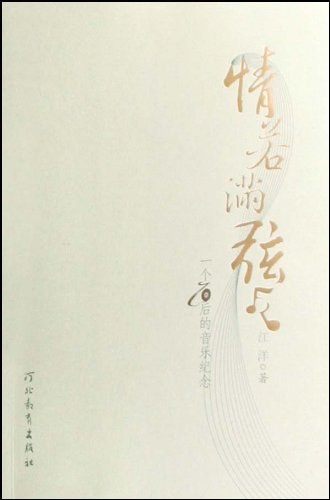 情若满弦
一个70后的音乐纪念
江 洋 著
河北教育出版社